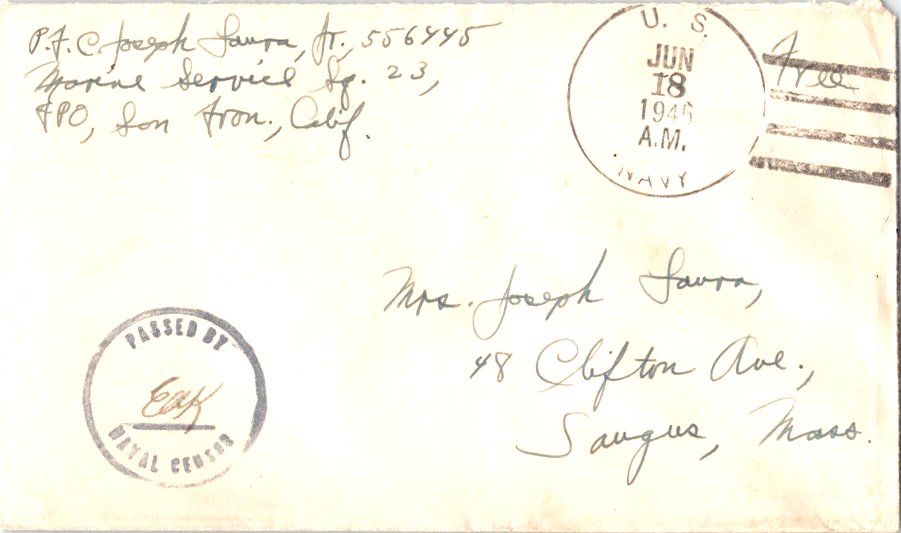 P.F.C. Joseph Laura, Jr. 556445
Marine Service Sq. 23,
FPO, San Fran., Calif.
U. S.
JUN
18
1945
A.M.
NAVY
Free
Mrs. Joseph Laura,
48 Clifton Ave.,
Saugus, Mass.
PASSED BY
EAK
NAVAL CENSOR